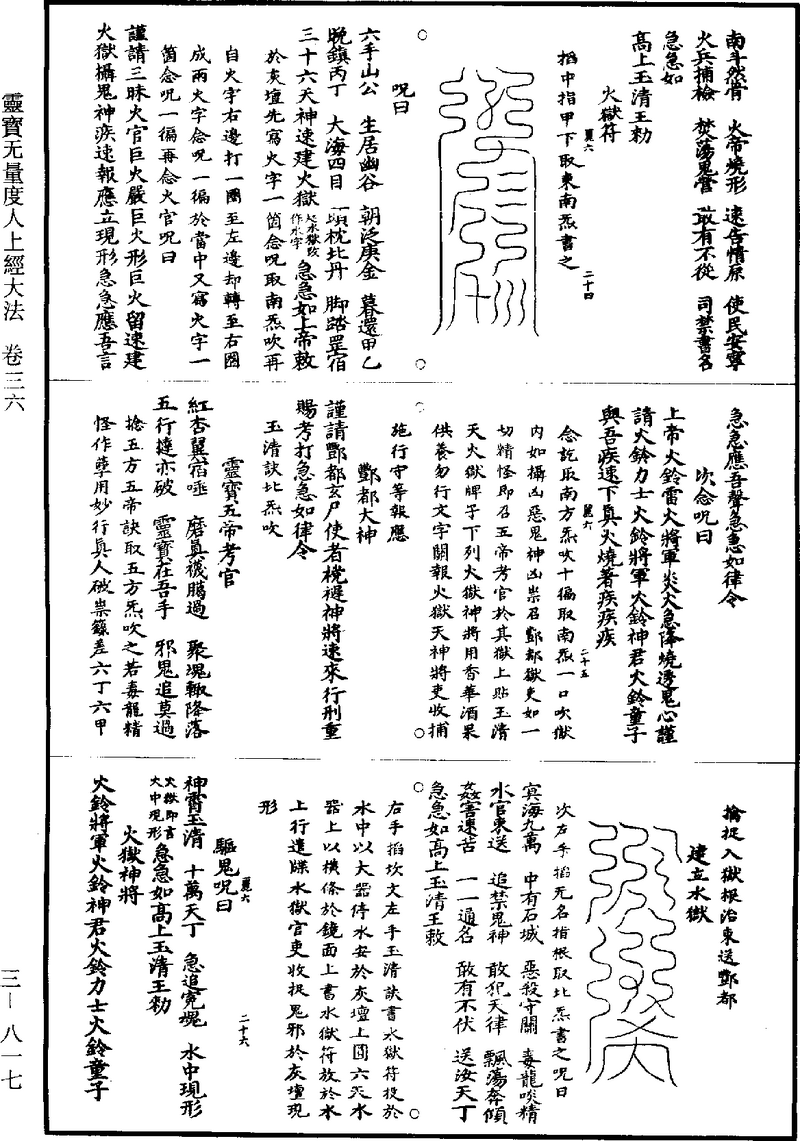 靈寶无量度人上經大法　卷三六
三—八一七
南斗然骨　火帝燒形　速告情原　使民安寧
火兵捕檢　焚蕩鬼營　敢有不從　司禁書名
急急如
高上玉清王勑
火獄符
掐中指甲下取東南炁書之
二十四
咒曰
六手山公　生居幽谷　朝泛庚金　暮還甲乙
晚鎮丙丁　大海四目　頭枕北丹　脚踏罡宿
三十六天神速建火獄如水獄改作水字急急如上帝敕
於灰壇先寫火字一箇念咒取南炁吹再
自火字右邊打一圈至左邊却轉至右圈
成兩火字念咒一徧於當中又寫火字一
箇念咒一徧再念火官咒曰
謹請三昧火官巨火嚴巨火形巨火留速建
火獄攝鬼神疾速報應立現形急急應吾言
急急應吾聲急急如律令
次念咒曰
上帝火鈴雷火將軍炎火急降燒透鬼心謹
請火鈴力士火鈴將軍火鈴神君火鈴童子
與吾疾速下真火燒著疾疾疾
二十五
念訖取南方炁吹十徧取南炁一口吹獄
內如攝凶惡鬼神凶祟召酆都獄吏如一
切精怪即召五帝考官於其獄上貼玉清
天火獄牌子下列火獄神將用香華酒果
供養勿行文字關報火獄天神將吏收捕
施行守等報應
酆都大神
謹請酆都玄尸使者欓禔神將速來行刑重
賜考打急急如律令
玉清訣北炁吹
靈寶五帝考官
紅杏翼宿唾　磨真襪騰過　聚塊輙降落
五行撻亦破　靈寶在吾手　邪鬼追莫過
捻五方五帝訣取五方炁吹之若毒龍精
怪作孽用妙行真人破祟籙差六丁六甲
擒捉入獄根治束送酆都
建立水獄
次左手掐无名指根取北炁書之咒曰
㝠海九萬　中有石城　惡殺守關　毒龍啖精
水官束送　追禁鬼神　敢犯天律　飄蕩奔傾
姦害速苦　一一通名　敢有不伏　送汝天丁
急急如高上玉清王敕
右手掐坎文左手玉清訣書水獄符投於
水中以大器停水安於灰壇上圓六天水
器上以橫條於鏡面上書水獄符放於水
上行遣牒水獄官吏收捉鬼邪於灰壇現
形
二十六
驅鬼咒曰
神霄玉清　十萬天丁　急追冤塊　水中現形
火獄即言火中現形急急如高上玉清王勑
火獄神將
火鈴將軍火鈴神君火鈴力士火鈴童子